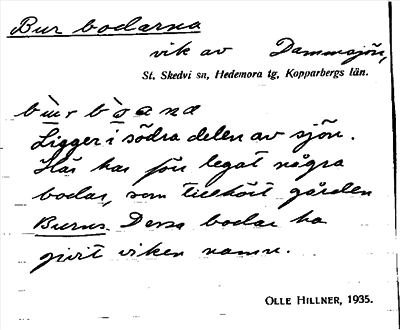 Bur bodarna
vik av Dammsjön,
St. Skedvi sn, Hedemora tg, Kopparbergs län.
Ligger i södra delen av sjön.
Här har förr legat några
bodar, som tillhört gården
Burns. Dessa bodar ha
givit viken namn.
OLLE HILLNER, 1935.